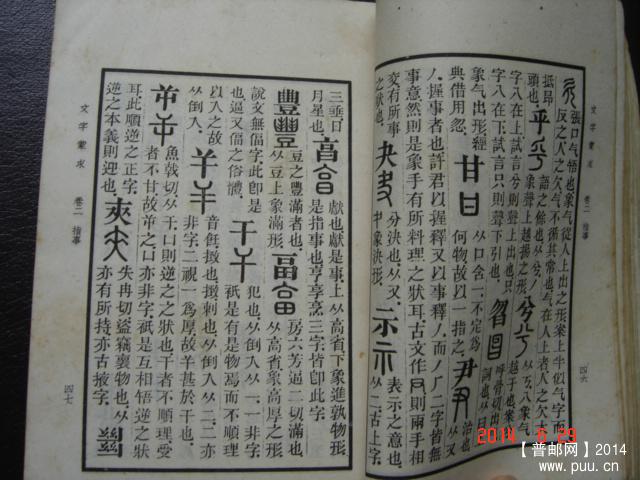 張口气悟也象气從人上出之形案上半似气字而
反之人之欠气不循其常也气在人上者人之欠
抵昂
頭也。乎 語之餘也从兮ノ象聲上越揚之形 兮 八象气
字八在上試言兮則聲上出也只 越于也象
字八在下試言只則聲下引也。曶 呼骨切出气詞也从曰
象气出形經典借用忽 甘 从口含一不定為何物故以一指之 尹 治也从又
ノ握事者也許君以握釋又以事釋ノ而ノ厂二字皆無
事意然則是象手有所料理之狀耳古文作 則兩手相
交有所事之狀也。夬 分決也从又中象決形。示 表示之意也从二古上字
文字蒙求 卷二 指事
四六
三垂日月星也。亯 獻也獻是事上从高省下象進孰物形是指事也亨享烹三字皆卽此字
豐 豆之豐滿者也从豆上象滿形。畐 房六芳逼二切滿也从高省象高厚之形
說文無偪字此卽是也逼又偪之俗體。干 犯也从倒入从一一非字
以入之故从倒入。 音飪撳也撳刺也从倒入从二二亦非字二視一爲厚故 甚於干也
屰 魚戟切从干口則逆之之狀也干者不順理受者不甘故 之口亦非字祇是互相牾逆之狀
祇是有是物焉而不順理
耳此順逆之正字逆之本義則迎也。夾 失冉切盜竊裹物也从亦有所持亦古掖字
文字蒙求 卷二 指事
四七
2014 6 29
【普邮网】2014
www.puu.cn